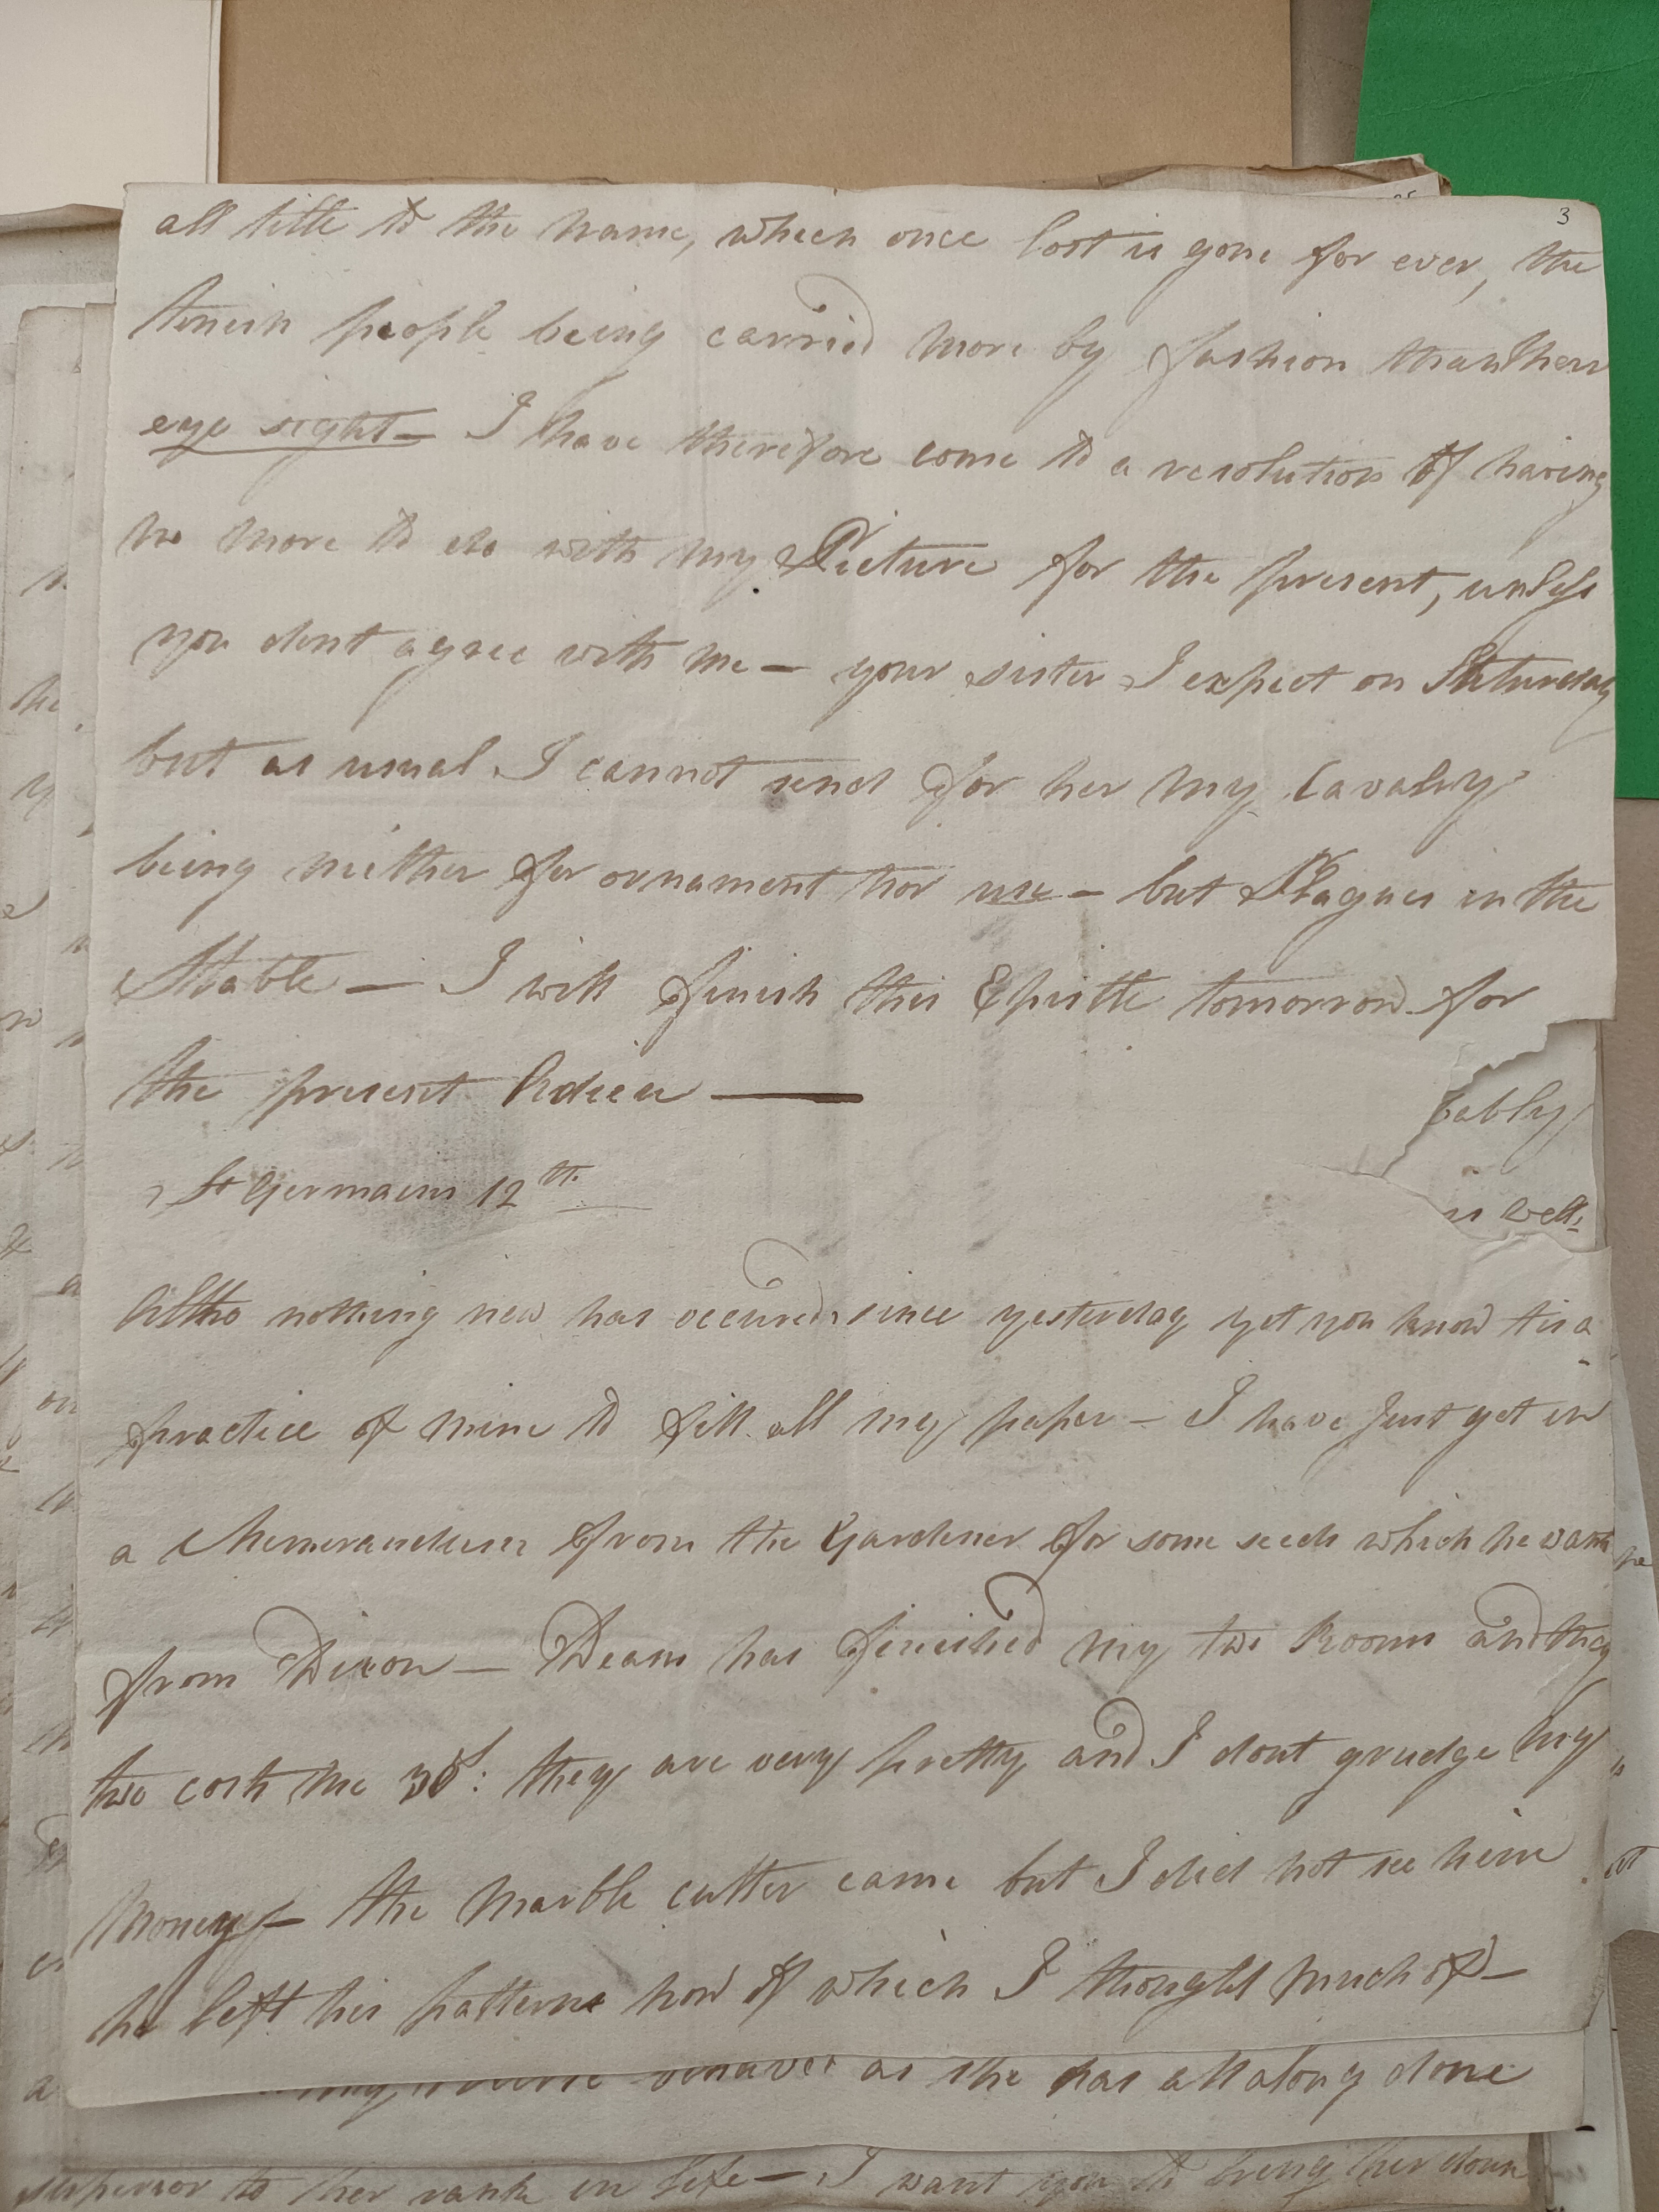 3
all title to the name, which once lost is gone for ever, the
people being carried more by fashion than their
eye sight – I have therefore come to a resolution of having
no more to do with my Picture for the present, unless
you dont agree with me – your sister I expect on Saturday
but as usual I cannot send for her my Cavalry
being neither for ornament nor use – but Plagues in the
Stable – I will finish this Epistle tomorrow for
the present Adieu —
bably
St Germains 12th
is well
Altho nothing new has occured since yesterday yet you know tis a
practice of mine to fill all my paper – I have just get in
a Memorandum from the Gardener for some seeds which he wants
from Dixon – Deam has finished my two Rooms and they
two costs me : they are very pretty and I dont grudge my
Money – the Marble cutter came but I did not see him
he left his patterns non of which I thought much of –
behaves as she has all along done
superior to her rank in life – I want you to bring her down